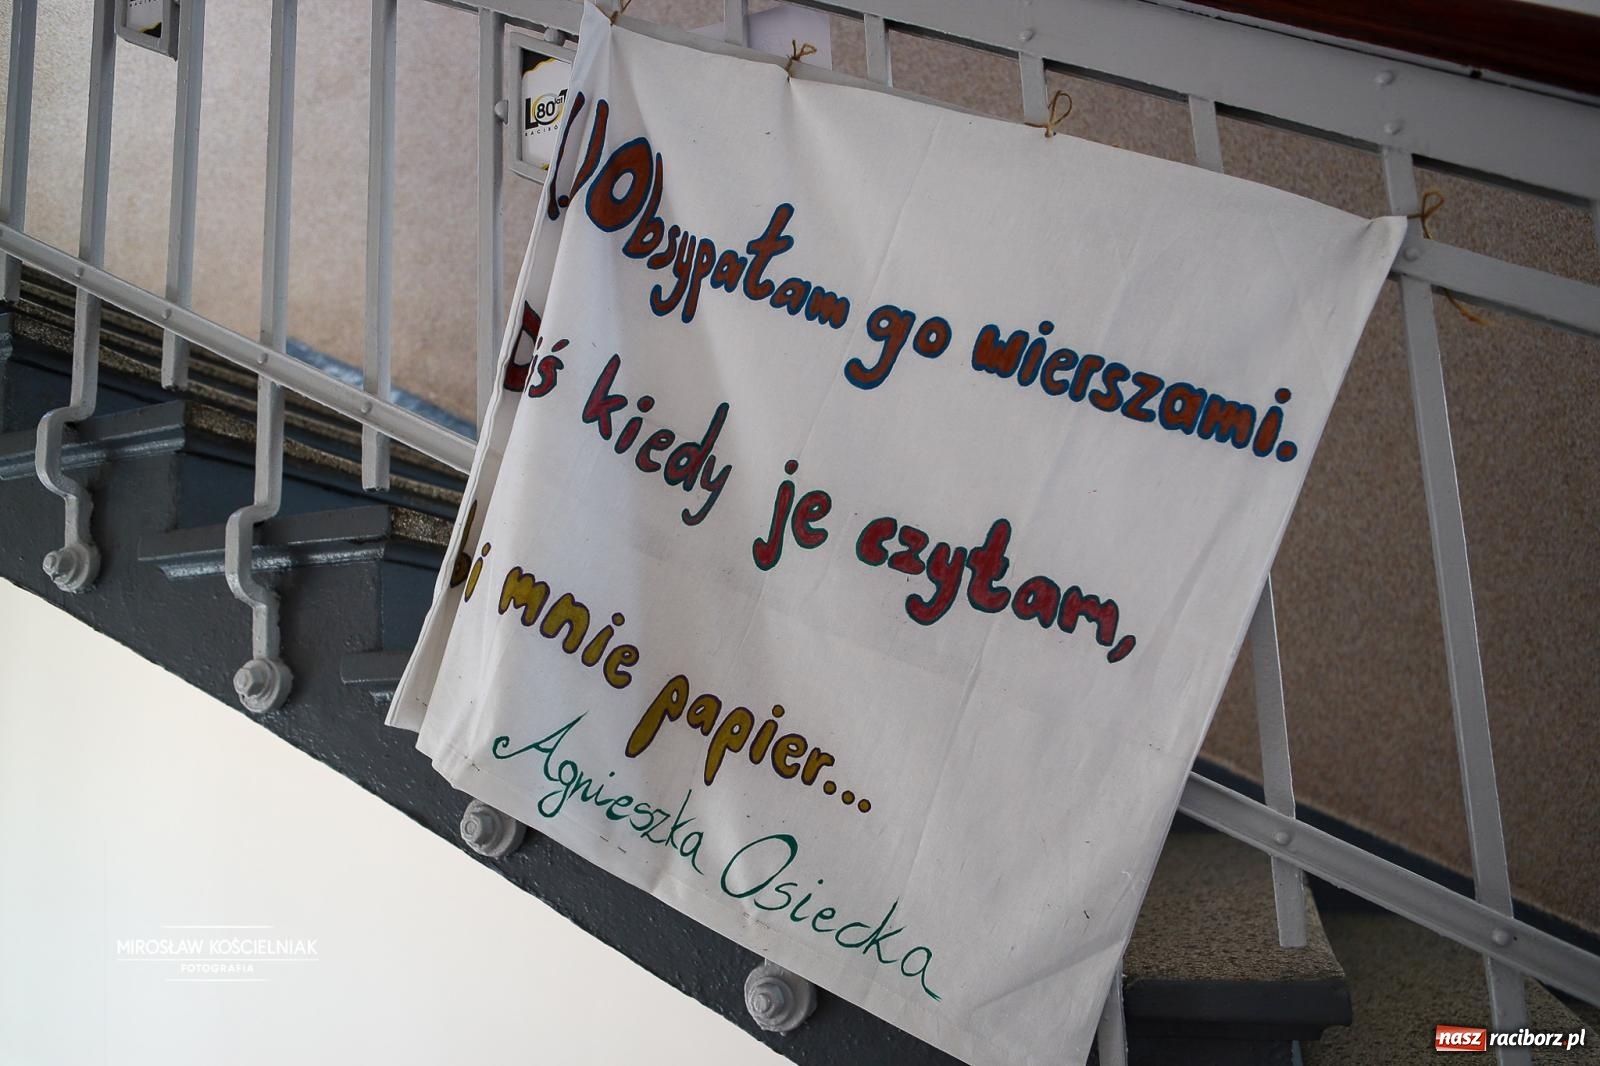 LO 80 lat
(...) Obsypałam go wierszami.
Dziś kiedy je czytam,
mnie papier...
Agnieszka Osiecka
MIROSŁAW KOŚCIELNIAK
FOTOGRAFIA
nasz raciborz.pl